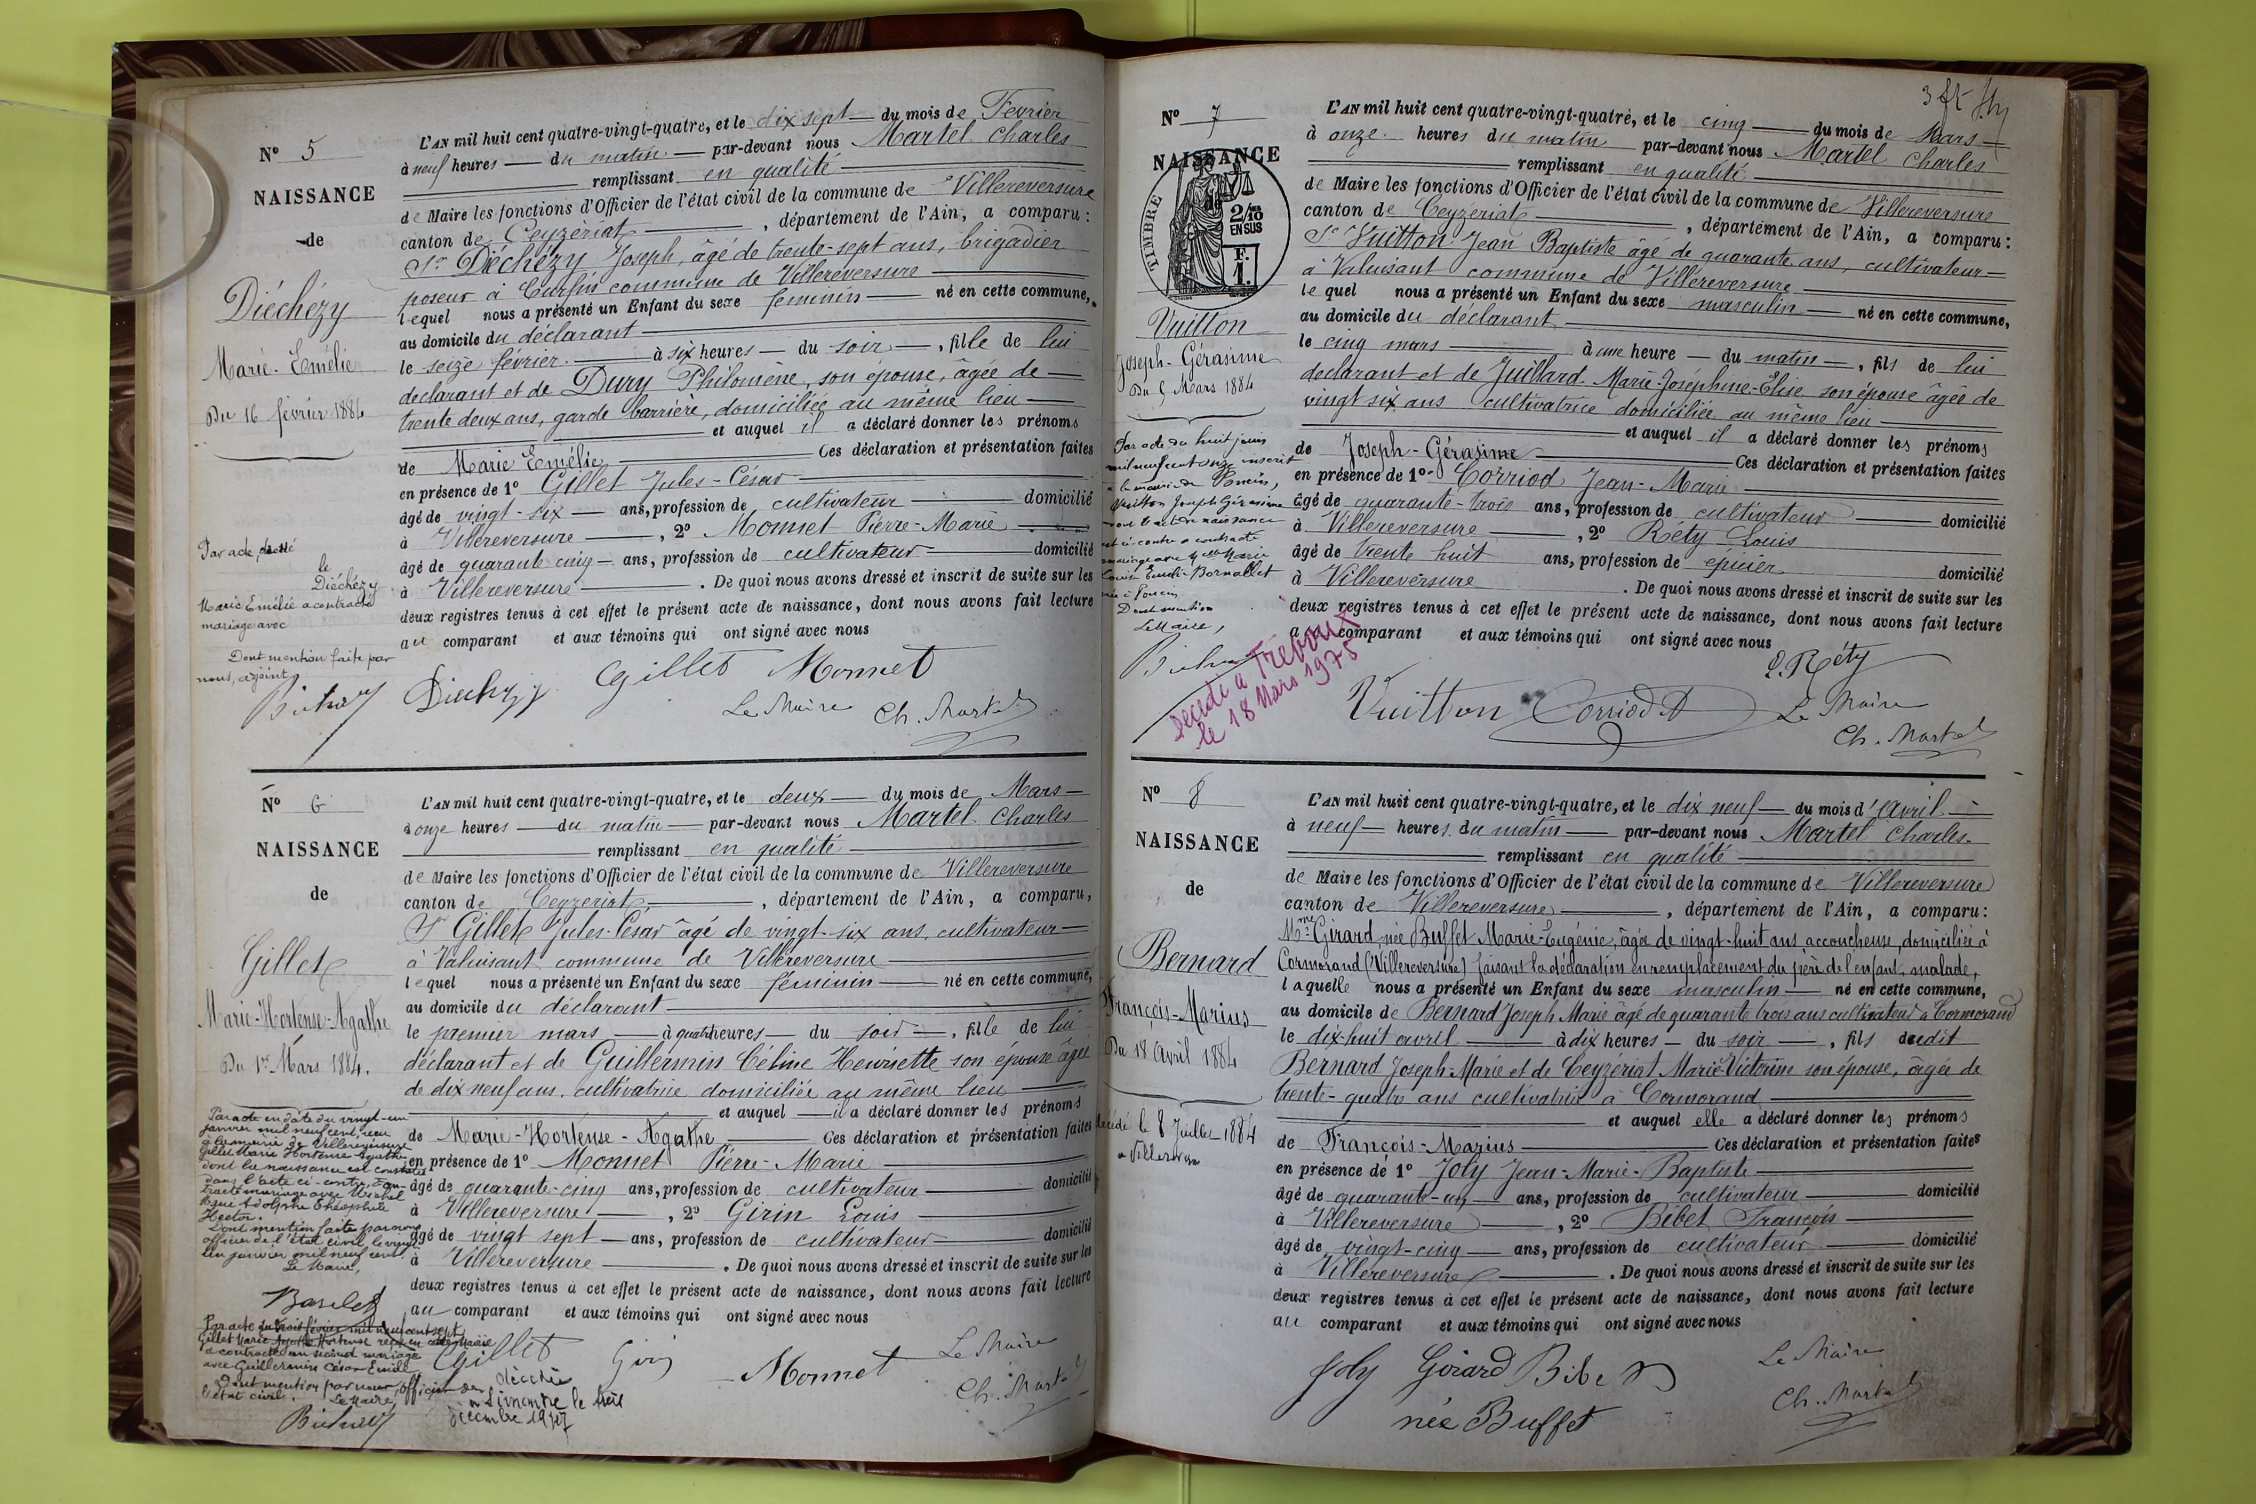 Nº 5
NAISSANCE
de
Diéchézy
Marie-Emélie
Du 16 février 1884
Par acte, dressé
le
Diéchézy
Marie Emélie a contracté
mariage avec
Dont mention faite par
nous, adjoint,
L'AN mil huit cent quatre-vingt-quatre, et le dix sept du mois de Février
à neuf heures du matin par-devant nous Martel Charles
remplissant en qualité
de Maire les fonctions d'Officier de l'état civil de la commune de Villereversure
canton de Ceyzeriat, département de l'Ain, a comparu:
Sr Diéchézy Joseph, âgé de trente-sept ans, brigadier
poseur à Curfin commune de Villereversure
lequel nous a présenté un Enfant du sexe féminin né en cette commune,
au domicile du déclarant
le seize février à six heures du soir, fille de lui
déclarant et de Dury Philomène, son épouse, âgée de
trente deux ans, garde barrière, domiciliée au même lieu
et auquel il a déclaré donner les prénoms
de Marie Emélie Ces déclaration et présentation faites
en présence de 1º Gillet Jules-César
âgé de vingt-six ans, profession de cultivateur domicilié
à Villereversure, 2º Monnet Pierre-Marie
âgé de quarante cinq ans, profession de cultivateur domicilié
à Villereversure. De quoi nous avons dressé et inscrit de suite sur les
deux registres tenus à cet effet le présent acte de naissance, dont nous avons fait lecture
au comparant et aux témoins qui ont signé avec nous
Diéchézy Gillet Monnet
Le Maire Ch. Martel
Nº 6
NAISSANCE
de
Gillet
Marie-Hortense-Agathe
Du 1er Mars 1884.
Par acte en date du vingt-un
janvier mil neuf cent, reçu
à la mairie de Villereversure
Gillet Marie Hortense Agathe
dont la naissance est constatée
dans l'acte ci-contre, a con-
tracté mariage avec Michel
Adolphe Théophile
Hector.
Dont mention faite par nous
officier de l'état civil le vingt
un janvier mil neuf cent.
Le Maire,
Par acte du trois février mil neuf cent sept
Gillet Marie Agathe Hortense
a contracté un second mariage
avec Guillermin César Emile
Dont mention par nous, officier de
l'état civil. Le Maire,
L'AN mil huit cent quatre-vingt-quatre, et le deux du mois de Mars
à onze heures du matin par-devant nous Martel Charles
remplissant en qualité
de Maire les fonctions d'Officier de l'état civil de la commune de Villereversure
canton de Ceyzeriat, département de l'Ain, a comparu,
Sr Gillet Jules-César âgé de vingt-six ans, cultivateur
à Valuisant commune de Villereversure
lequel nous a présenté un Enfant du sexe féminin né en cette commune,
au domicile du déclarant
le premier mars à quatre heures du soir, fille de lui
déclarant et de Guillermin Céline Henriette son épouse âgée
de dix neuf ans, cultivatrice domiciliée au même lieu
et auquel il a déclaré donner les prénoms
de Marie-Hortense-Agathe Ces déclaration et présentation faites
en présence de 1º Monnet Pierre-Marie
âgé de quarante-cinq ans, profession de cultivateur domicilié
à Villereversure, 2º Girin Louis
âgé de vingt sept ans, profession de cultivateur domicilié
à Villereversure. De quoi nous avons dressé et inscrit de suite sur les
deux registres tenus à cet effet le présent acte de naissance, dont nous avons fait lecture
au comparant et aux témoins qui ont signé avec nous
Gillet Girin Monnet Le Maire
Ch. Martel
décédée
à Simandre le
décembre
Nº 7
NAISSANCE
TIMBRE
2/10
EN SUS
F.
1.
Vuitton
Joseph-Gérasime
Du 5 Mars 1884
Par acte du huit juin
mil neuf cent onze inscrit
à la mairie de Poncin,
Vuitton Joseph Gérasime
dont l'acte de naissance
est ci-contre a contracté
mariage avec Melle Marie
Bornallet
née à Poncin
Dont mention
Le Maire,
Décédé à Trévoux
le 18 Mars 1975
L'AN mil huit cent quatre-vingt-quatre, et le cinq du mois de Mars
à onze heures du matin par-devant nous Martel Charles
remplissant en qualité
de Maire les fonctions d'Officier de l'état civil de la commune de Villereversure
canton de Ceyzeriat, département de l'Ain, a comparu:
Sr Vuitton Jean Baptiste âgé de quarante ans, cultivateur
à Valuisant commune de Villereversure
lequel nous a présenté un Enfant du sexe masculin né en cette commune,
au domicile du déclarant
le cinq mars à une heure du matin, fils de lui
déclarant et de Juillard Marie-Joséphine-Elise son épouse âgée de
vingt six ans cultivatrice domiciliée au même lieu
et auquel il a déclaré donner les prénoms
de Joseph-Gérasime Ces déclaration et présentation faites
en présence de 1º Corriod Jean-Marie
âgé de quarante-trois ans, profession de cultivateur domicilié
à Villereversure, 2º Réty Louis
âgé de trente huit ans, profession de épicier domicilié
à Villereversure. De quoi nous avons dressé et inscrit de suite sur les
deux registres tenus à cet effet le présent acte de naissance, dont nous avons fait lecture
au comparant et aux témoins qui ont signé avec nous
L. Réty
Vuitton Corriod Le Maire
Ch. Martel
Nº 8
NAISSANCE
de
Bernard
François-Marius
Du 18 Avril 1884
décédé le 8 Juillet 1884
à Villereversure
L'AN mil huit cent quatre-vingt-quatre, et le dix neuf du mois d'Avril
à neuf heures du matin par-devant nous Martel Charles
remplissant en qualité
de Maire les fonctions d'Officier de l'état civil de la commune de Villereversure
canton de Villereversure, département de l'Ain, a comparu:
Mme Girard, née Buffet Marie-Eugénie, âgée de vingt-huit ans, accoucheuse, domiciliée à
Cormorand (Villereversure) faisant la déclaration en remplacement du père de l'enfant, malade,
laquelle nous a présenté un Enfant du sexe masculin né en cette commune,
au domicile de Bernard Joseph Marie âgé de quarante trois ans cultivateur à Cormorand
le dix-huit avril à dix heures du soir, fils dudit
Bernard Joseph-Marie et de Ceyzériat Marie-Victorine son épouse, âgée de
trente-quatre ans cultivatrice à Cormorand
et auquel elle a déclaré donner les prénoms
de François-Marius Ces déclaration et présentation faites
en présence de 1º Joly Jean-Marie-Baptiste
âgé de quarante-un ans, profession de cultivateur domicilié
à Villereversure, 2º Bibet François
âgé de vingt-cinq ans, profession de cultivateur domicilié
à Villereversure. De quoi nous avons dressé et inscrit de suite sur les
deux registres tenus à cet effet le présent acte de naissance, dont nous avons fait lecture
au comparant et aux témoins qui ont signé avec nous
Joly Girard Bibet Le Maire
née Buffet Ch. Martel